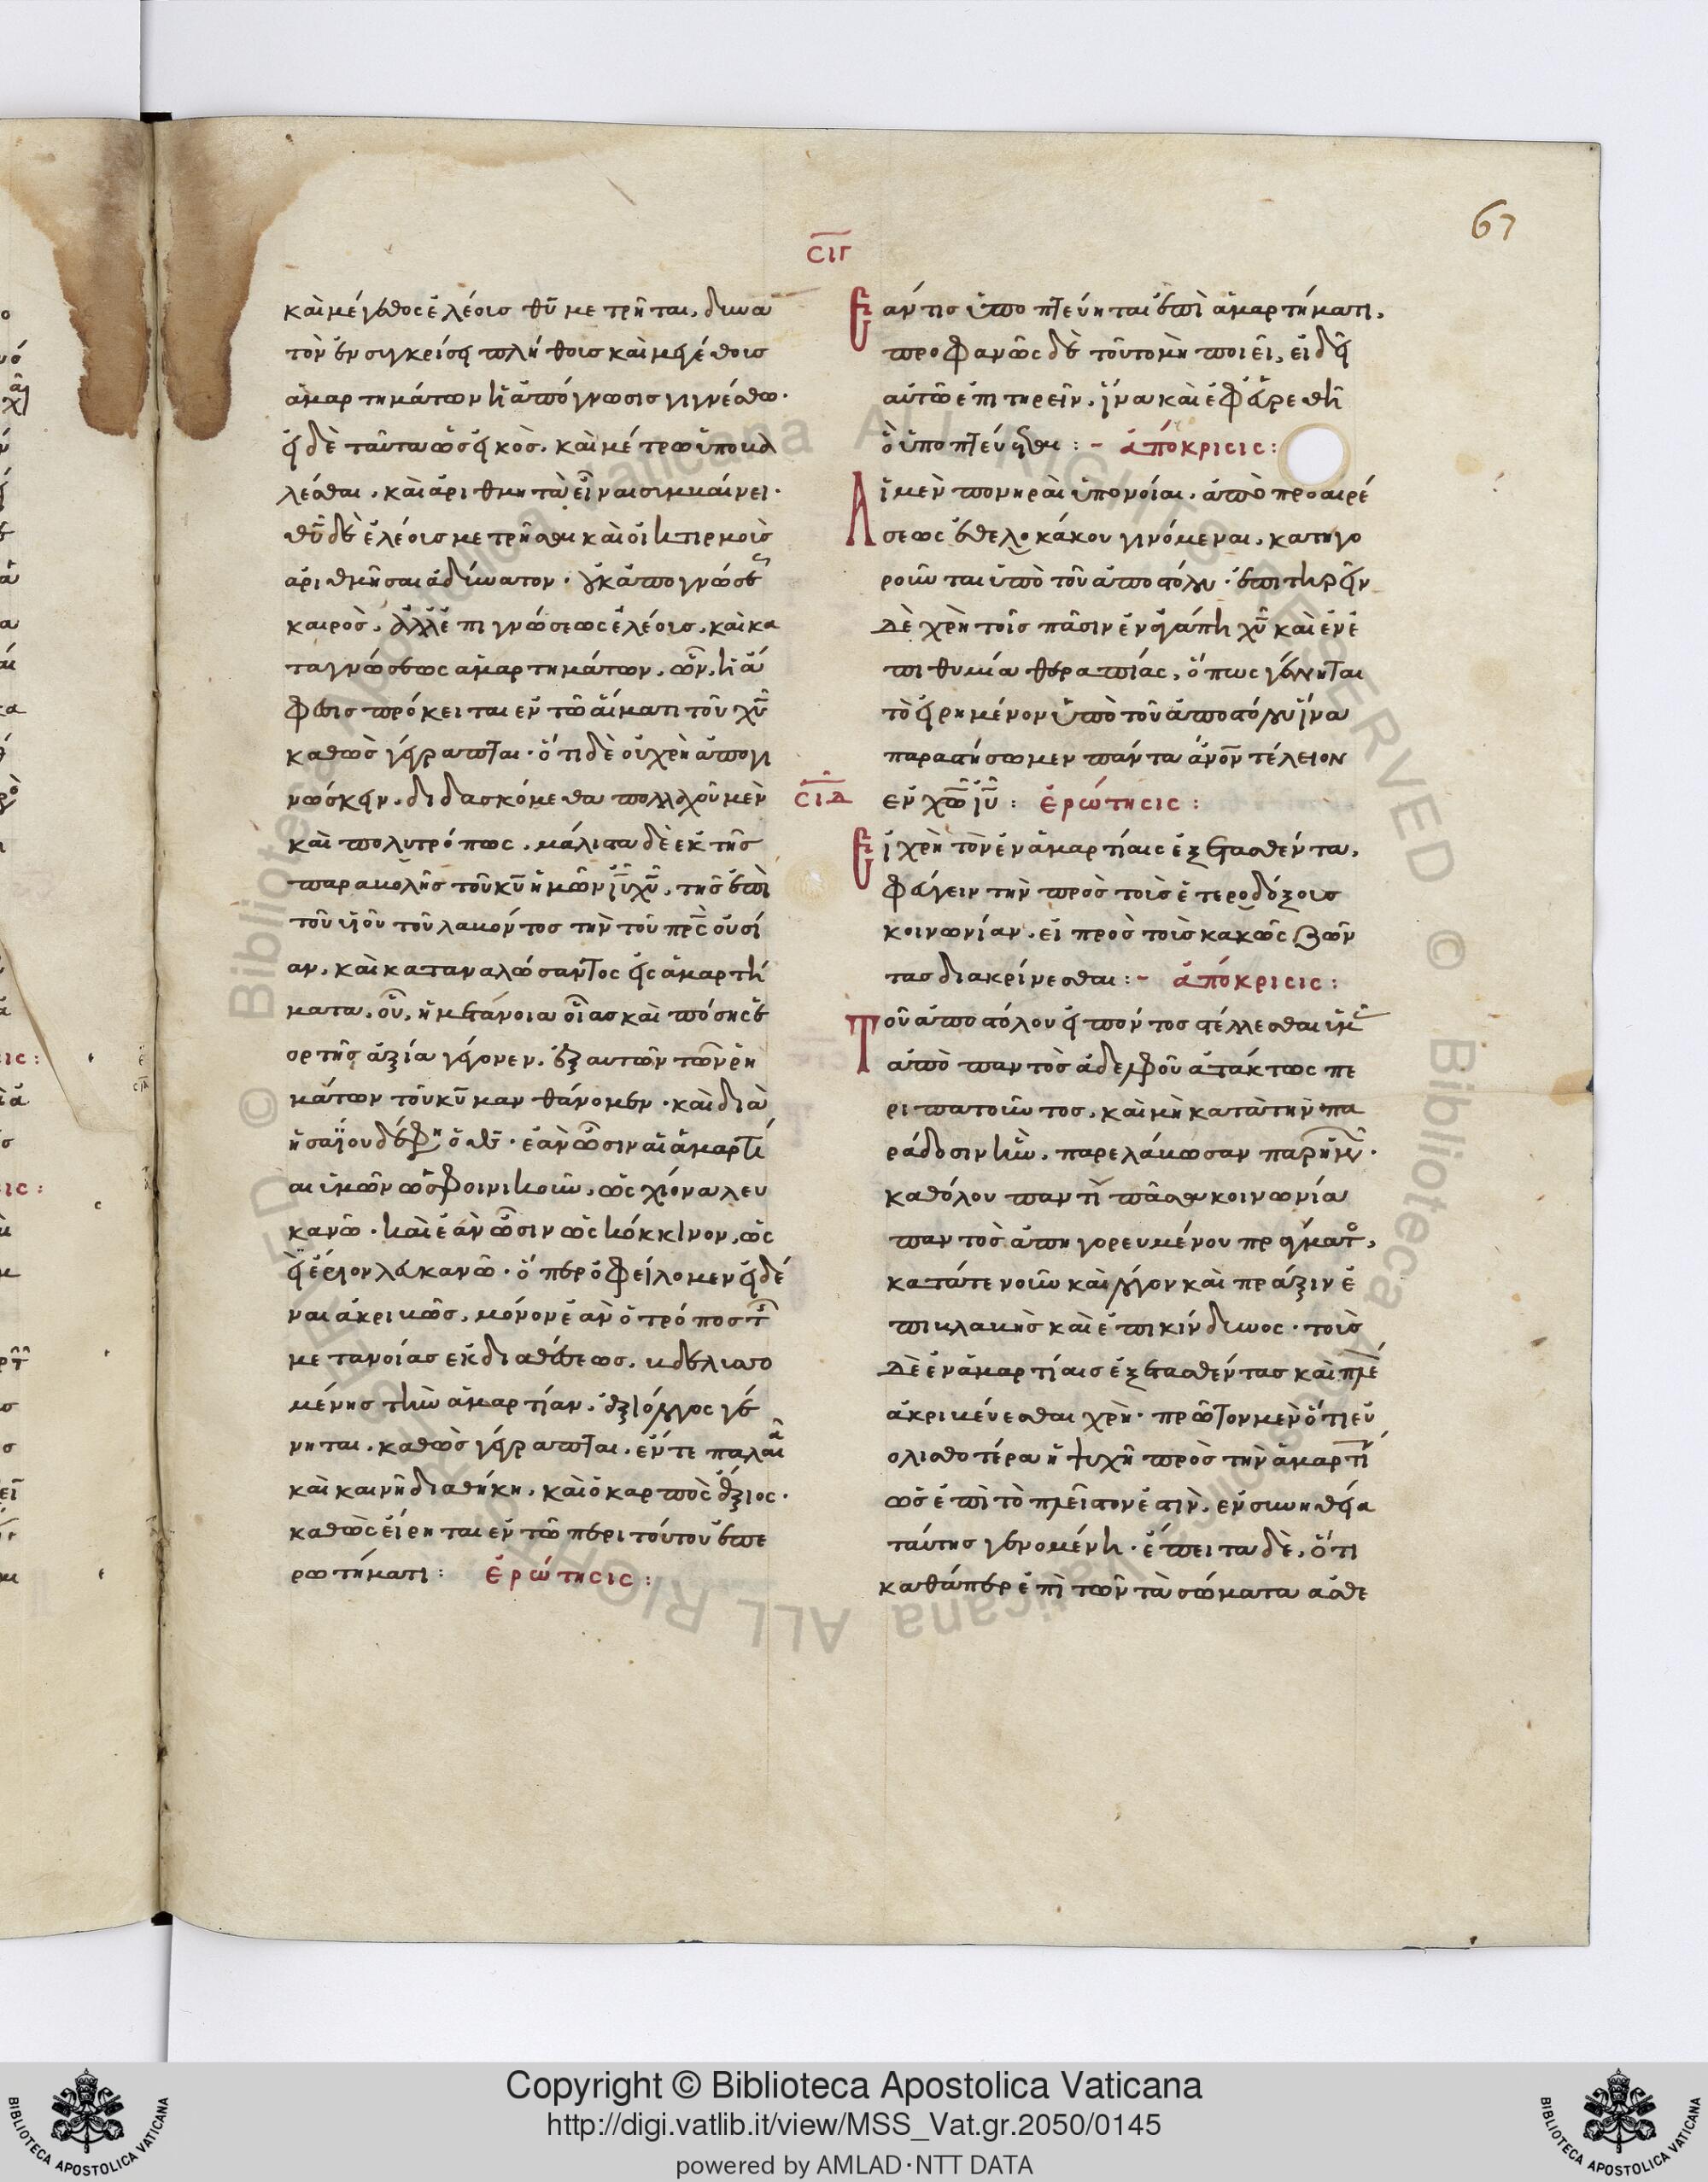 67
καὶ μέγεθος ἐλέους θῦ μετρῆται, δυνα
τὸν ἐν συγκρίσει πλήθους καὶ μεγέθους
ἁμαρτημάτων ἡ ἀπόγνωσις γινέσθω·
εἰ δὲ ταῦτα ὡς εἰκὸς, καὶ μέτρω ὑποβάλ
λέσθαι, καὶ ἀριθμητὰ εἶναι συμβαίνει·
θῦ δὲ ἐλέους μετρῆσαι καὶ οἰκτιρμοὺς
ἀριθμῆσαι ἀδύνατον· οὐκ ἀπογνώσεως
καιρὸς, ἀλλ' ἐπιγνώσεως ἐλέους, καὶ κα
ταγνώσεως ἁμαρτημάτων, ὧν, ἡ ἄ
φεσις πρόκειται ἐν τῶ αἵματι τοῦ χῦ
καθὼς γέγραπται· ὅτι δὲ οὐ χρὴ ἀπογι
νώσκειν, διδασκόμεθα πολλαχοῦ μὲν
καὶ πολυτρόπως, μάλιστα δὲ ἐκ τῆς
παραβολῆς τοῦ κῦ ἡμῶν ἰῦ χῦ, τῆς ἐπὶ
τοῦ υἱοῦ τοῦ λαβόντος τὴν τοῦ πρς οὐσί
αν, καὶ καταναλώσαντος εἰς ἁμαρτή
ματα, οὗ, ἡ μετάνοια οἵας καὶ πόσης ἑ
ορτῆς ἀξία γέγονεν, ἐξ αὐτῶν τῶν ῥη
μάτων τοῦ κῦ μανθάνομεν· καὶ διὰ
ἡσαΐου δέ φη ὁ θς· ἐὰν ὦσιν αἱ ἁμαρτί
αι ὑμῶν ὡς φοινικοῦν, ὡς χιόνα λευ
κανῶ· καὶ ἐὰν ὦσιν ὡς κόκκινον, ὡς
εἰ ἔριον λευκανῶ· ὅπερ ὀφείλομεν εἰδέ
ναι ἀκριβῶς, μόνον ἐὰν ὁ τρόπος τῆς
μετανοίας ἐκ διαθέσεως, βδελυσσο
μένης τὴν ἁμαρτίαν, ἀξιόλογος γέ
νηται, καθὼς γέγραπται, ἔν τε παλαιᾶ
καὶ καινῆ διαθήκη, καὶ ὁ καρπὸς ἄξιος·
καθὼς εἴρηται ἐν τῶ περὶ τούτου ἐπε
ρωτήματι: ἐρώτησις:
ΣΙΓ
Ἐάν τις ὑποπτεύηται ἐπὶ ἁμαρτήματι,
προφανῶς δὲ τοῦτο μὴ ποιεῖ, εἰ δεῖ
αὐτῶ ἐπιτηρεῖν, ἵνα καὶ ἐφευρεθῆ
ὃ ὑποπτεύεται:- ἀπόκρισις:
Αἱ μὲν πονηραὶ ὑπονοίαι, ἀπὸ προαιρέ
σεως ἐθελοκάκου γινόμεναι, κατηγο
ροῦνται ὑπὸ τοῦ ἀποστόλου· ἐπιτηρεῖν
δὲ χρὴ τοῖς πᾶσιν ἐν ἀγάπη χῦ καὶ ἐν ἐ
πιθυμία θεραπείας, ὅπως γένηται
τὸ εἰρημένον ὑπὸ τοῦ ἀποστόλου ἵνα
παραστήσωμεν πάντα ἄνον τέλειον
ΣΙΔ
ἐν χῶ ἰῦ: ἐρώτησις:
Εἰ χρὴ τὸν ἐν ἁμαρτίαις ἐξετασθέντα,
φεύγειν τὴν πρὸς τοὺς ἑτεροδόξους
κοινωνίαν, εἰ πρὸς τοὺς κακῶς ζῶν
τας διακρίνεσθαι:- ἀπόκρισις:
Τοῦ ἀποστόλου εἰπόντος στέλλεσθαι ὑμᾶς
ἀπὸ παντὸς ἀδελφοῦ ἀτάκτως πε
ριπατοῦντος, καὶ μὴ κατὰ τὴν πα
ράδοσιν ἣν, παρελάβωσαν παρ' ἡμῶν·
καθόλου παντὶ πᾶσα κοινωνία
παντὸς ἀπηγορευμένου πράγματος,
κατάτε νοῦν καὶ λόγον καὶ πράξιν ἐ
πιβλαβὴς καὶ ἐπικίνδυνος· τοὺς
δὲ ἐν ἁμαρτίαις ἐξετασθέντας καὶ πλέ
ἀκριβεύεσθαι χρὴ· πρῶτον μὲν ὅτι εὐ
ολισθοτέρα ἡ ψυχὴ πρὸς τὴν ἁμαρτί
ὡς ἐπὶ τὸ πλεῖστον ἐστὶν, ἐν συνηθεία
ταύτης γενομένη· ἔπειτα δὲ, ὅτι
καθάπερ ἐπὶ τῶν τὰ σώματα ἀσθε
Copyright © Biblioteca Apostolica Vaticana
http://digi.vatlib.it/view/MSS_Vat.gr.2050/0145
powered by AMLAD·NTT DATA
BIBLIOTECA APOSTOLICA VATICANA
BIBLIOTECA APOSTOLICA VATICANA